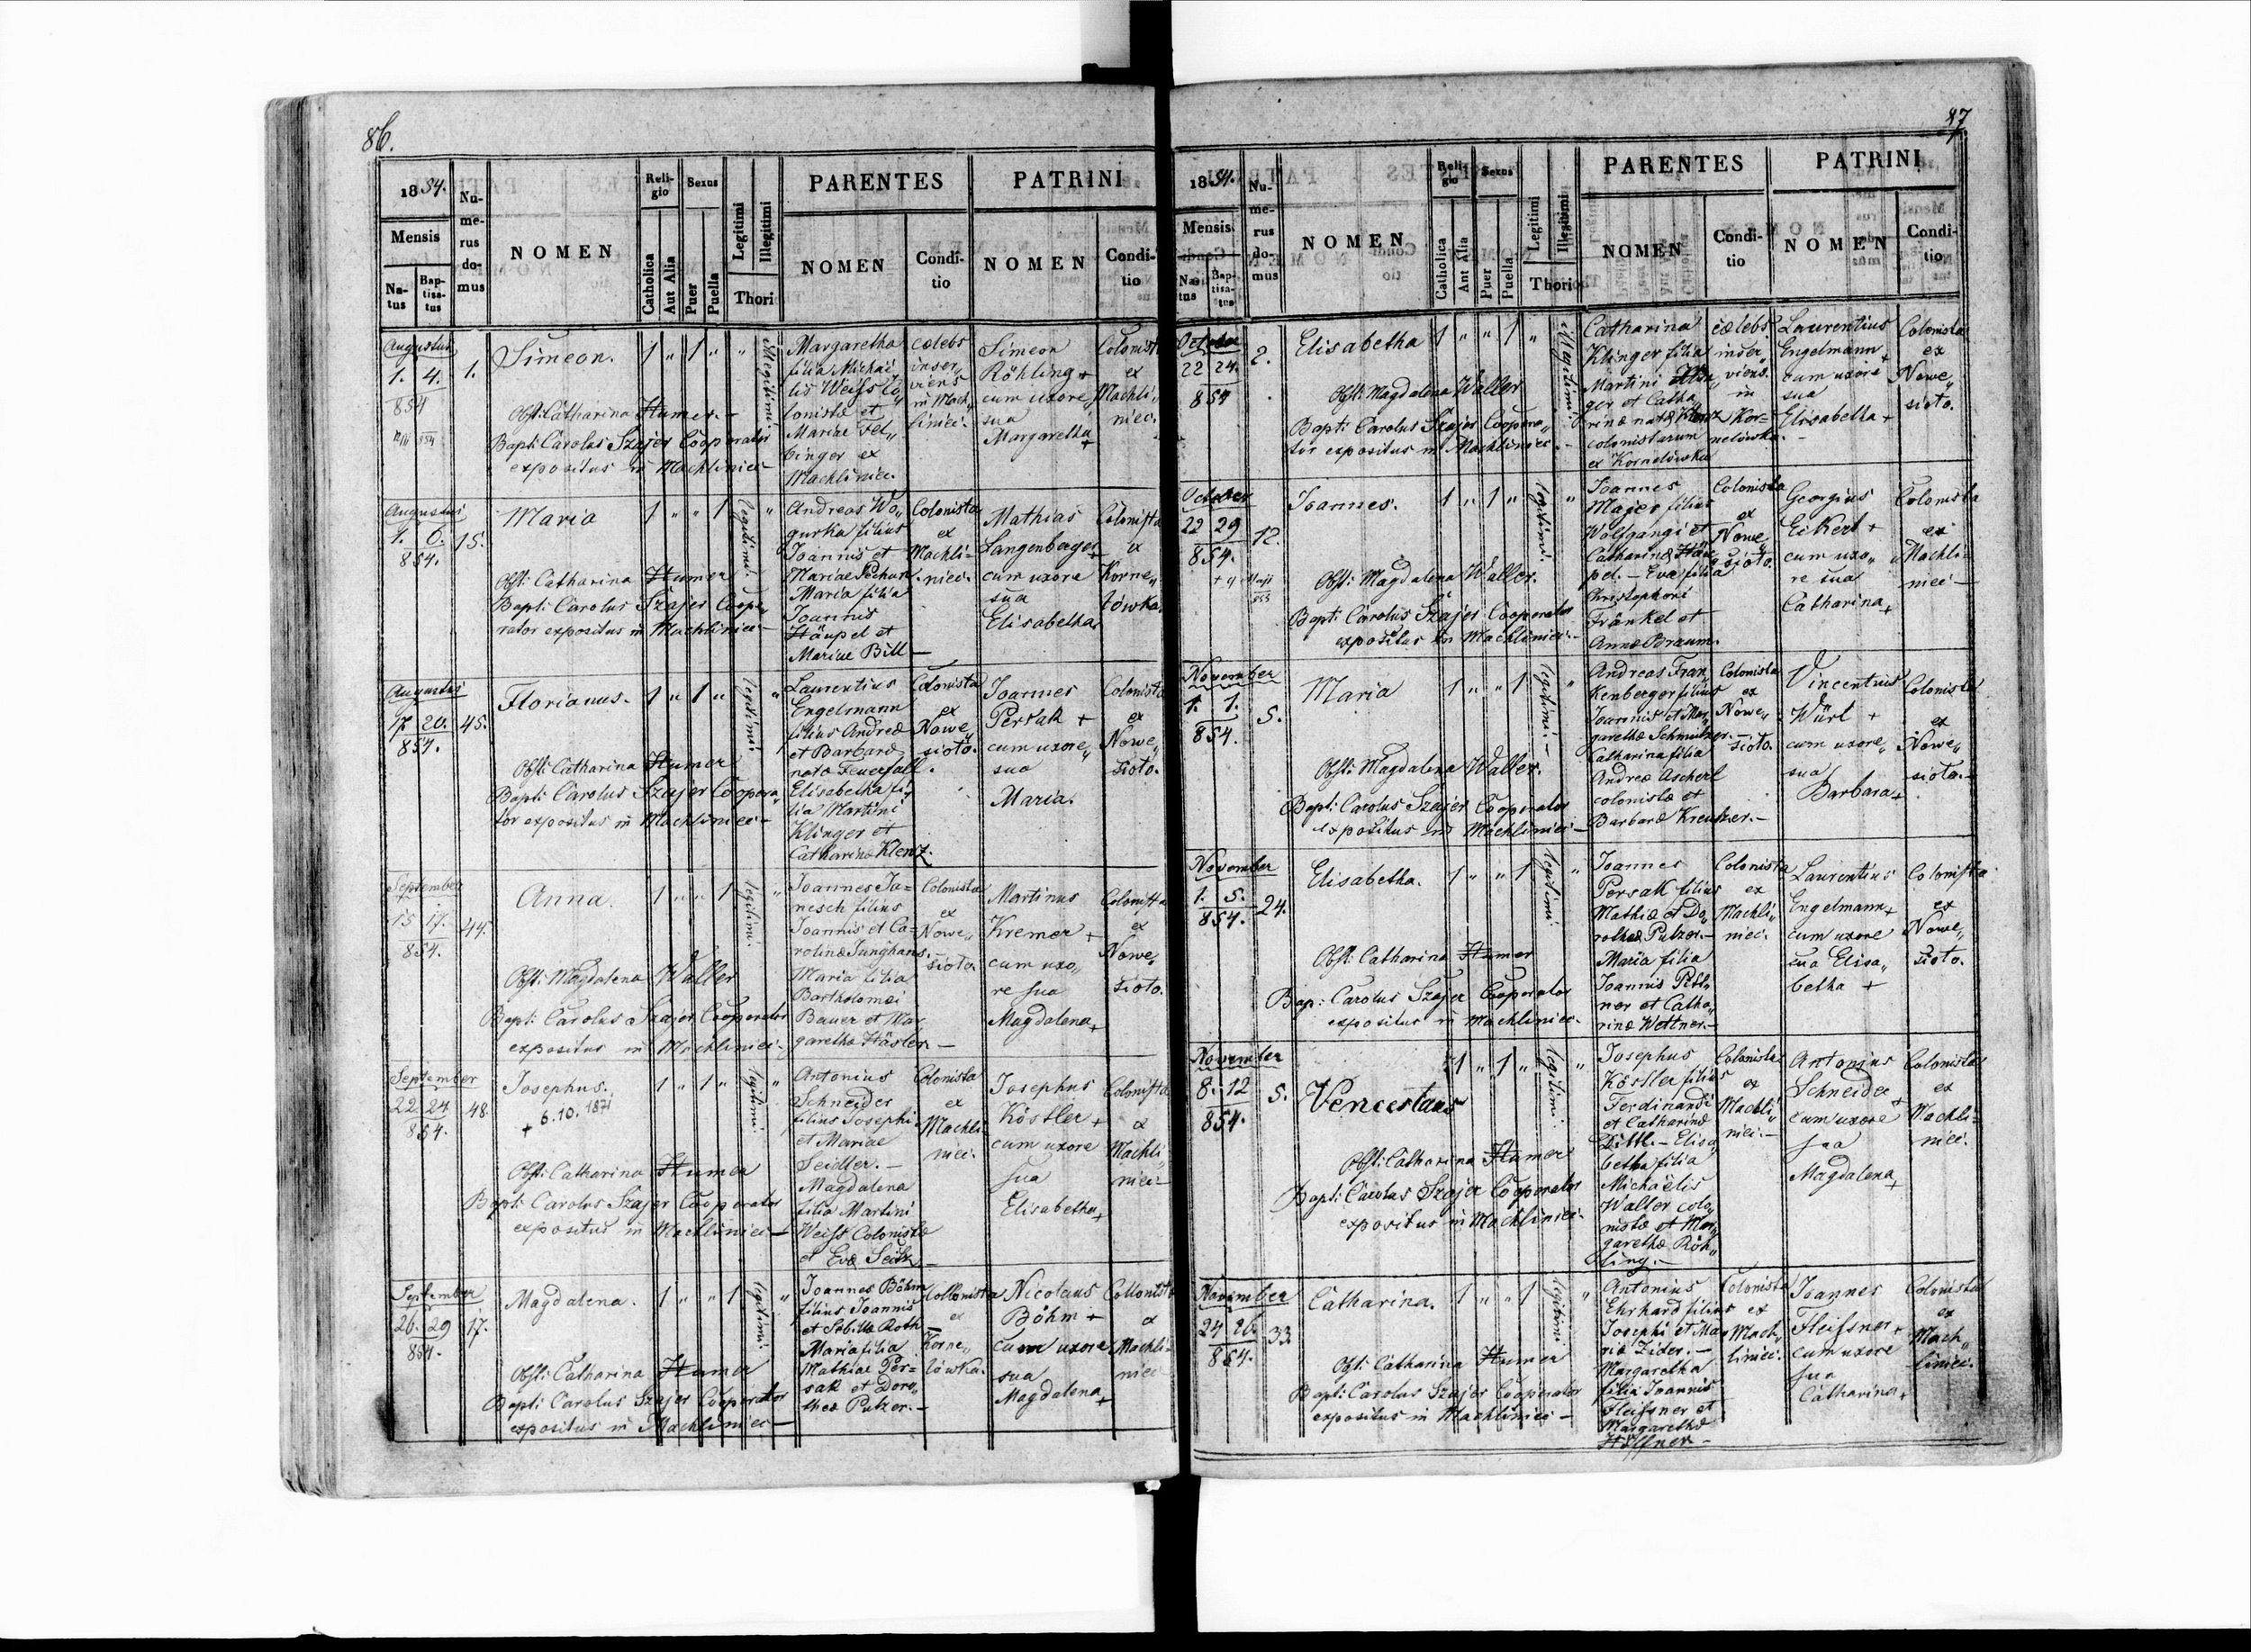 86.
1854.
Mensis
Natus
Baptisatus
Numerus domus
NOMEN
Religio
Catholica
Aut Alia
Sexus
Puer
Puella
Legitimi
Illegitimi
Thori
PARENTES
NOMEN
Conditio
PATRINI
NOMEN
Conditio
Augustus
1. 4.
854
1.
Simeon.
1 " 1 " "
illegitimi.
Obst: Catharina Humer.-
Bapt: Carolus Szajer Cooperator
expositus in Machliniec-
Margaretha
filia Michae
lis Weiss Co„
lonistæ et
Mariae Fel„
binger ex
Machliniec.
cælebs
inser„
viens
in Mach„
liniec.
Simeon
Röhling +
cum uxore„
sua
Margaretha
+
Colonista
ex
Machli„
niec.
Augustus
1. 6.
854.
15.
Maria
1 " " 1
legitimi.
"
Obst: Catharina Humer
Bapt: Carolus Szajer Coope„
rator expositus in Machliniec-
Andreas Wo„
gurka filius
Joannis et
Mariae Pechar.
Maria filia
Joannis
Häupel et
Mariae Bill -
Colonista
ex
Machli=
niec.
Mathias
Langenberger
cum uxore
sua
Elisabetha
Colonista
ex
Korne„
lówka.
Augustus
17. 20.
854.
45.
Florianus.
1 " 1 "
legitimi
"
Obst: Catharina Humer
Bapt: Carolus Szajer Coopera„
tor expositus in Machliniec-
Laurentius
Engelmann
filius Andreæ
et Barbaræ
natæ Feuerfall.
Elisabetha fi„
lia Martini
Klinger et
Catharinæ Klenz.
Colonista
ex
Nowe„
sioło.
Joannes
Persak +
cum uxore„
sua
Maria.
Colonista
ex
Nowe„
sioło.
September
15 17.
854.
44.
Anna.
1 " " 1
legitimi.
"
Obst: Magdalena Waller
Bapt: Carolus Szajer Cooperator
expositus in Machliniec-
Joannes Ja=
nesch filius
Joannis et Ca=
rolinæ Junghans.
Maria filia
Bartholomei
Bauer et Mar
garetha Häsler -
Colonista
ex
Nowe„
sioło.
Martinus
Kremer +
cum uxo„
re sua
Magdalena+
Colonista
ex
Nowe„
sioło.
September
22. 24.
854.
48.
Josephus.
+ 6.10.1871
1 " 1 "
legitimi.
"
Obst: Catharina Humer
Bapt: Carolus Szajer Cooperator
expositus in Machliniec-
Antonius
Schneider
filius Josephi
et Mariae
Seidler.-
Magdalena
filia Martini
Weiss Colonistæ
et Evæ
Colonista
ex
Machli
niec.
Josephus
Köstler +
cum uxore
sua
Elisabetha+
Colonista
ex
Machli„
niec-
September
26. 29
854.
17.
Magdalena.
1 " " 1
legitimi.
"
Obst: Catharina Humer
Bapt: Carolus Szajer Cooperator
expositus in Machliniec-
Joannes Böhm
filius Joannis
et Sibilla Roth
Maria filia
Mathiae Per=
sak et Doro„
theæ Putzer.-
Collonista
ex
Korne„
lówka.
Nicolaus
Böhm +
cum uxore
sua
Magdalena+
Collonista
ex
Machli=
niec-
87.
1854.
Mensis
Natus
Baptisatus
Numerus domus
NOMEN
Religio
Catholica
Aut Alia
Sexus
Puer
Puella
Legitimi
Illegitimi
Thori
PARENTES
NOMEN
Conditio
PATRINI
NOMEN
Conditio
October
22 24.
854
2.
Elisabetha
1 " " 1 "
illegitimi.
Obst: Magdalena Waller
Bapt: Carolus Szajer Coopera„
tor expositus in Machliniec-
Catharina
Klinger filia
Martini Klin„
ger et Catha„
rinæ natæ Klenz
colonistarum
ex Kornelówka
cælebs
inser„
viens.
in
Kor=
nelówka.
Laurentius
Engelmann+
cum uxore
sua
Elisabetha+
Colonista
ex
Nowe„
sioło.
October
22 29
854.
12.
Joannes.
1 " 1 "
legitimi.
"
Obst: Magdalena Waller.
Bapt: Carolus Szajer Cooperator
expositus in Machliniec-
Joannes
Majer filius
Wolfgangi et
Catharinæ Häu
pel.- Eva filia
Christophori
Fränkel et
Annæ Braum.
Colonista
ex
Nowe„
sioło.
Georgius
Eikert +
cum uxo„
re sua
Catharina+
Colonista
ex
Machli=
niec-
November
1. 1.
854.
5.
Maria
1 " " 1
legitimi.-
"
Obst: Magdalena Waller.
Bapt: Carolus Szajer Cooperator
expositus in Machliniec-
Andreas Fran„
kenberger filius
Joannis et Mar„
garethæ Schmelzer.-
Catharina filia
Andreæ Ascherl
colonistæ et
Barbaræ Kreutzer.-
Colonista
ex
Nowe„
sioło.
Vincentius
Würl +
cum uxore„
sua
Barbara+
Colonista
ex
Nowe„
sioło.
November
1. 5.
854.
24.
Elisabetha.
1 " " 1
legitimi.
"
Obst: Catharina Humer
Bap: Carolus Szajer Cooperator
expositus in Machliniec.
Joannes
Persak filius
Mathiæ et Do„
rotheæ Putzer.-
Maria filia
Joannis
ner et Catha„
rinæ Wettner.-
Colonista
ex
Machli„
niec.
Laurentius
Engelmann+
cum uxore
sua Elisa„
betha +
Colonista
ex
Nowe„
sioło.
November
8. 12
854.
5.
Venceslaus
1 " 1 "
legitimi.
"
Obst: Catharina Humer
Bapt: Carolus Szajer Cooperator
expositus in Machliniec-
Josephus
Köstler filius
Ferdinandi
et Catharinæ
Dittl.- Elisa„
betha filia
Michaëlis
Walter colo„
nistæ et Mar„
garethæ Röh„
ling.-
Colonista
ex
Machli„
niec.-
Antonius
Schneider+
cum uxore
sua
Magdalena+
Colonista
ex
Machli=
niec.
November
24 26.
854.
33
Catharina.
1 " " 1
legitimi
"
Obst: Catharina Humer
Bapt: Carolus Szajer Cooperator
expositus in Machliniec-
Antonius
Ehrhard filius
Josephi et Ma„
riæ Zider.-
Margaretha
filia Joannis
Fleissner et
Margarethæ
Höffner-
Colonista
ex
Mach„
liniec.
Joannes
Fleissner+
cum uxore
sua
Catharina+
Colonista
ex
Mach„
liniec.